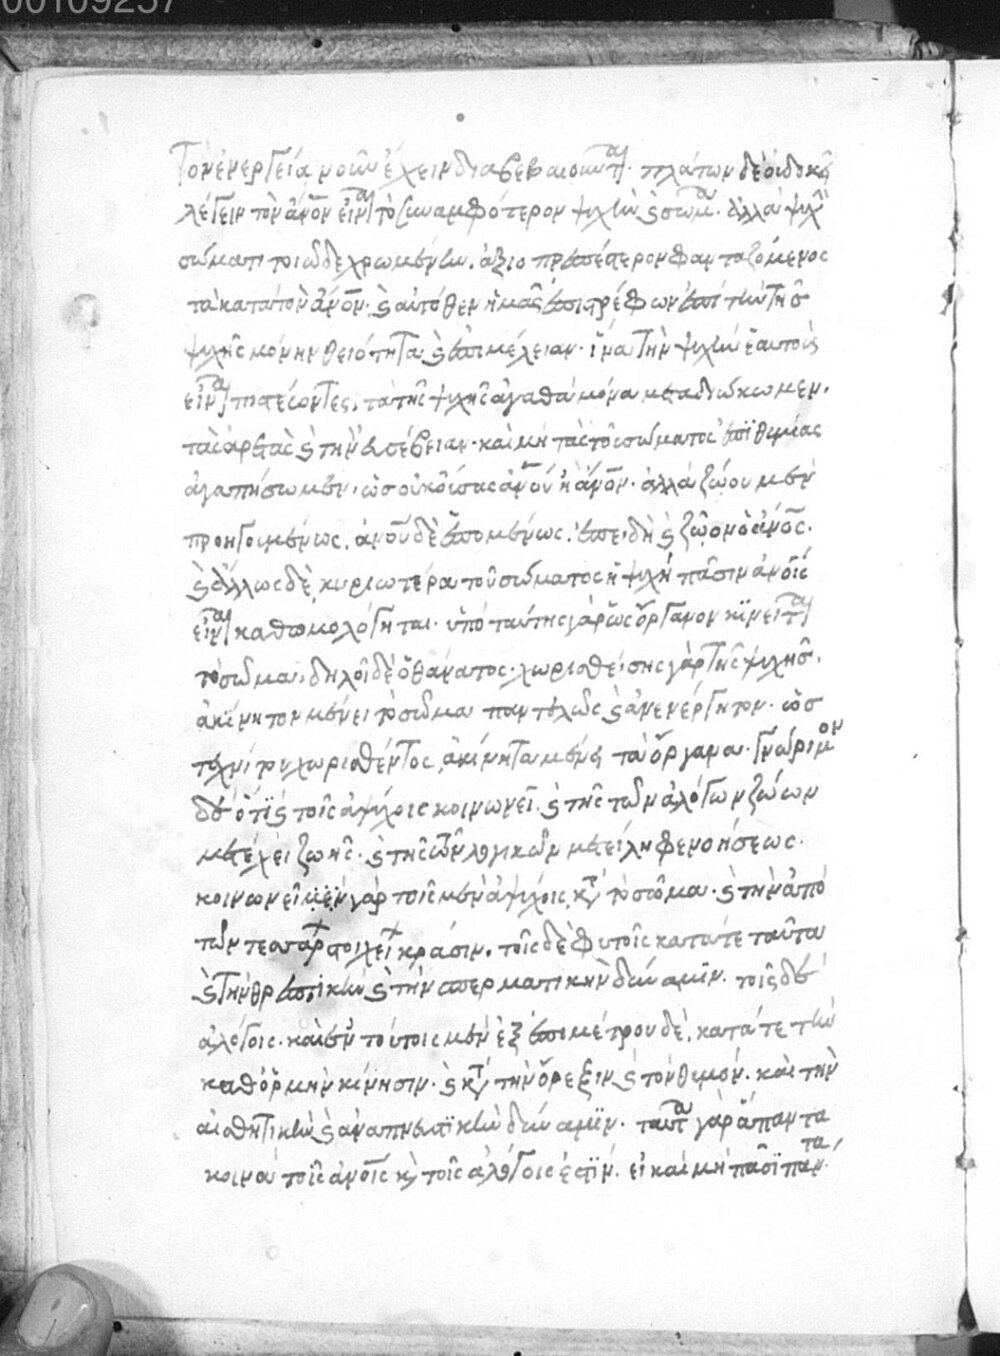 00109257
τὸν ἐνεργεία νοῦν ἔχειν διαβεβαιοῦνται. πλάτων δὲ οὐ δοκεῖ
λέγειν τὸν ἄνον εἶναι τὸ συναμφότερον ψυχὴν ϗ σῶμα. ἀλλὰ ψυχὴν
σώματι τοιῶδε χρωμένην. ἀξιοπρεπέστερον φανταζόμενος
τὰ κατὰ τὸν ἄνον. ϗ αὐτόθεν ἡμᾶς ἐπιστρέφων ἐπὶ τὴν τῆς
ψυχῆς μόνην θειότητα ϗ ἐπιμέλειαν. ἵνα τὴν ψυχὴν ἑαυτοὺς
εἶναι πιστεύοντες, τὰ τῆς ψυχῆς ἀγαθὰ μόνα μεταδιώκωμεν.
τὰς ἀρετὰς ϗ τὴν εὐσέβειαν. καὶ μὴ τὰς τοῦ σώματος ἐπιθυμίας
ἀγαπήσωμεν. ὡς οὐκ οὔσας ἀνου ἧ ἄνον. ἀλλὰ ζώου μὲν
προηγουμένως, ἀνου δὲ ἑπομένως. ἐπειδὴ ϗ ζῶον ὁ ἄνος.
ϗ ἄλλως δὲ, κυριωτέρα τοῦ σώματος ἡ ψυχὴ πᾶσιν ἀνοις
εἶναι καθωμολόγηται. ὑπὸ ταύτης γὰρ ὡς ὄργανον κινεῖται
τὸ σῶμα. δηλοῖ δὲ ὁ θάνατος. χωρισθείσης γὰρ τῆς ψυχῆς,
ἀκίνητον μένει τὸ σῶμα παντελῶς ϗ ἀνενέργητον. ὡς
τεχνίτου χωρισθέντος, ἀκίνητα μένει τὰ ὄργανα. γνώριμον
δὲ ὅτι ϗ τοῖς ἀψύχοις κοινωνεῖ. ϗ τῆς τῶν ἀλόγων ζώων
μετέχει ζωῆς. ϗ τῆς τῶν λογικῶν μετείληφε νοήσεως.
κοινωνεῖ μὲν γὰρ τοῖς μὲν ἀψύχοις, κατὰ τὸ σῶμα. ϗ τὴν ἀπὸ
τῶν τεσσάρ στοιχεί κράσιν. τοῖς δὲ φυτοῖς κατά τε ταῦτα
ϗ τὴν θρεπτικὴν ϗ τὴν σπερματικὴν δύναμιν. τοῖς δὲ
ἀλόγοις. καὶ ἐν τούτοις μὲν ἐξ ἐπιμέτρου δὲ, κατά τε τὴν
καθ ὁρμὴν κίνησιν. ϗ κατὰ τὴν ὄρεξιν ϗ τὸν θυμόν. καὶ τὴν
αἰσθητικὴν ϗ ἀναπνευστικὴν δύναμιν. ταῦτα γὰρ ἅπαντα
κοινὰ τοῖς ἀνοις ϗ τοῖς ἀλόγοις ἐστίν. εἰ καὶ μὴ πᾶσι πάντα